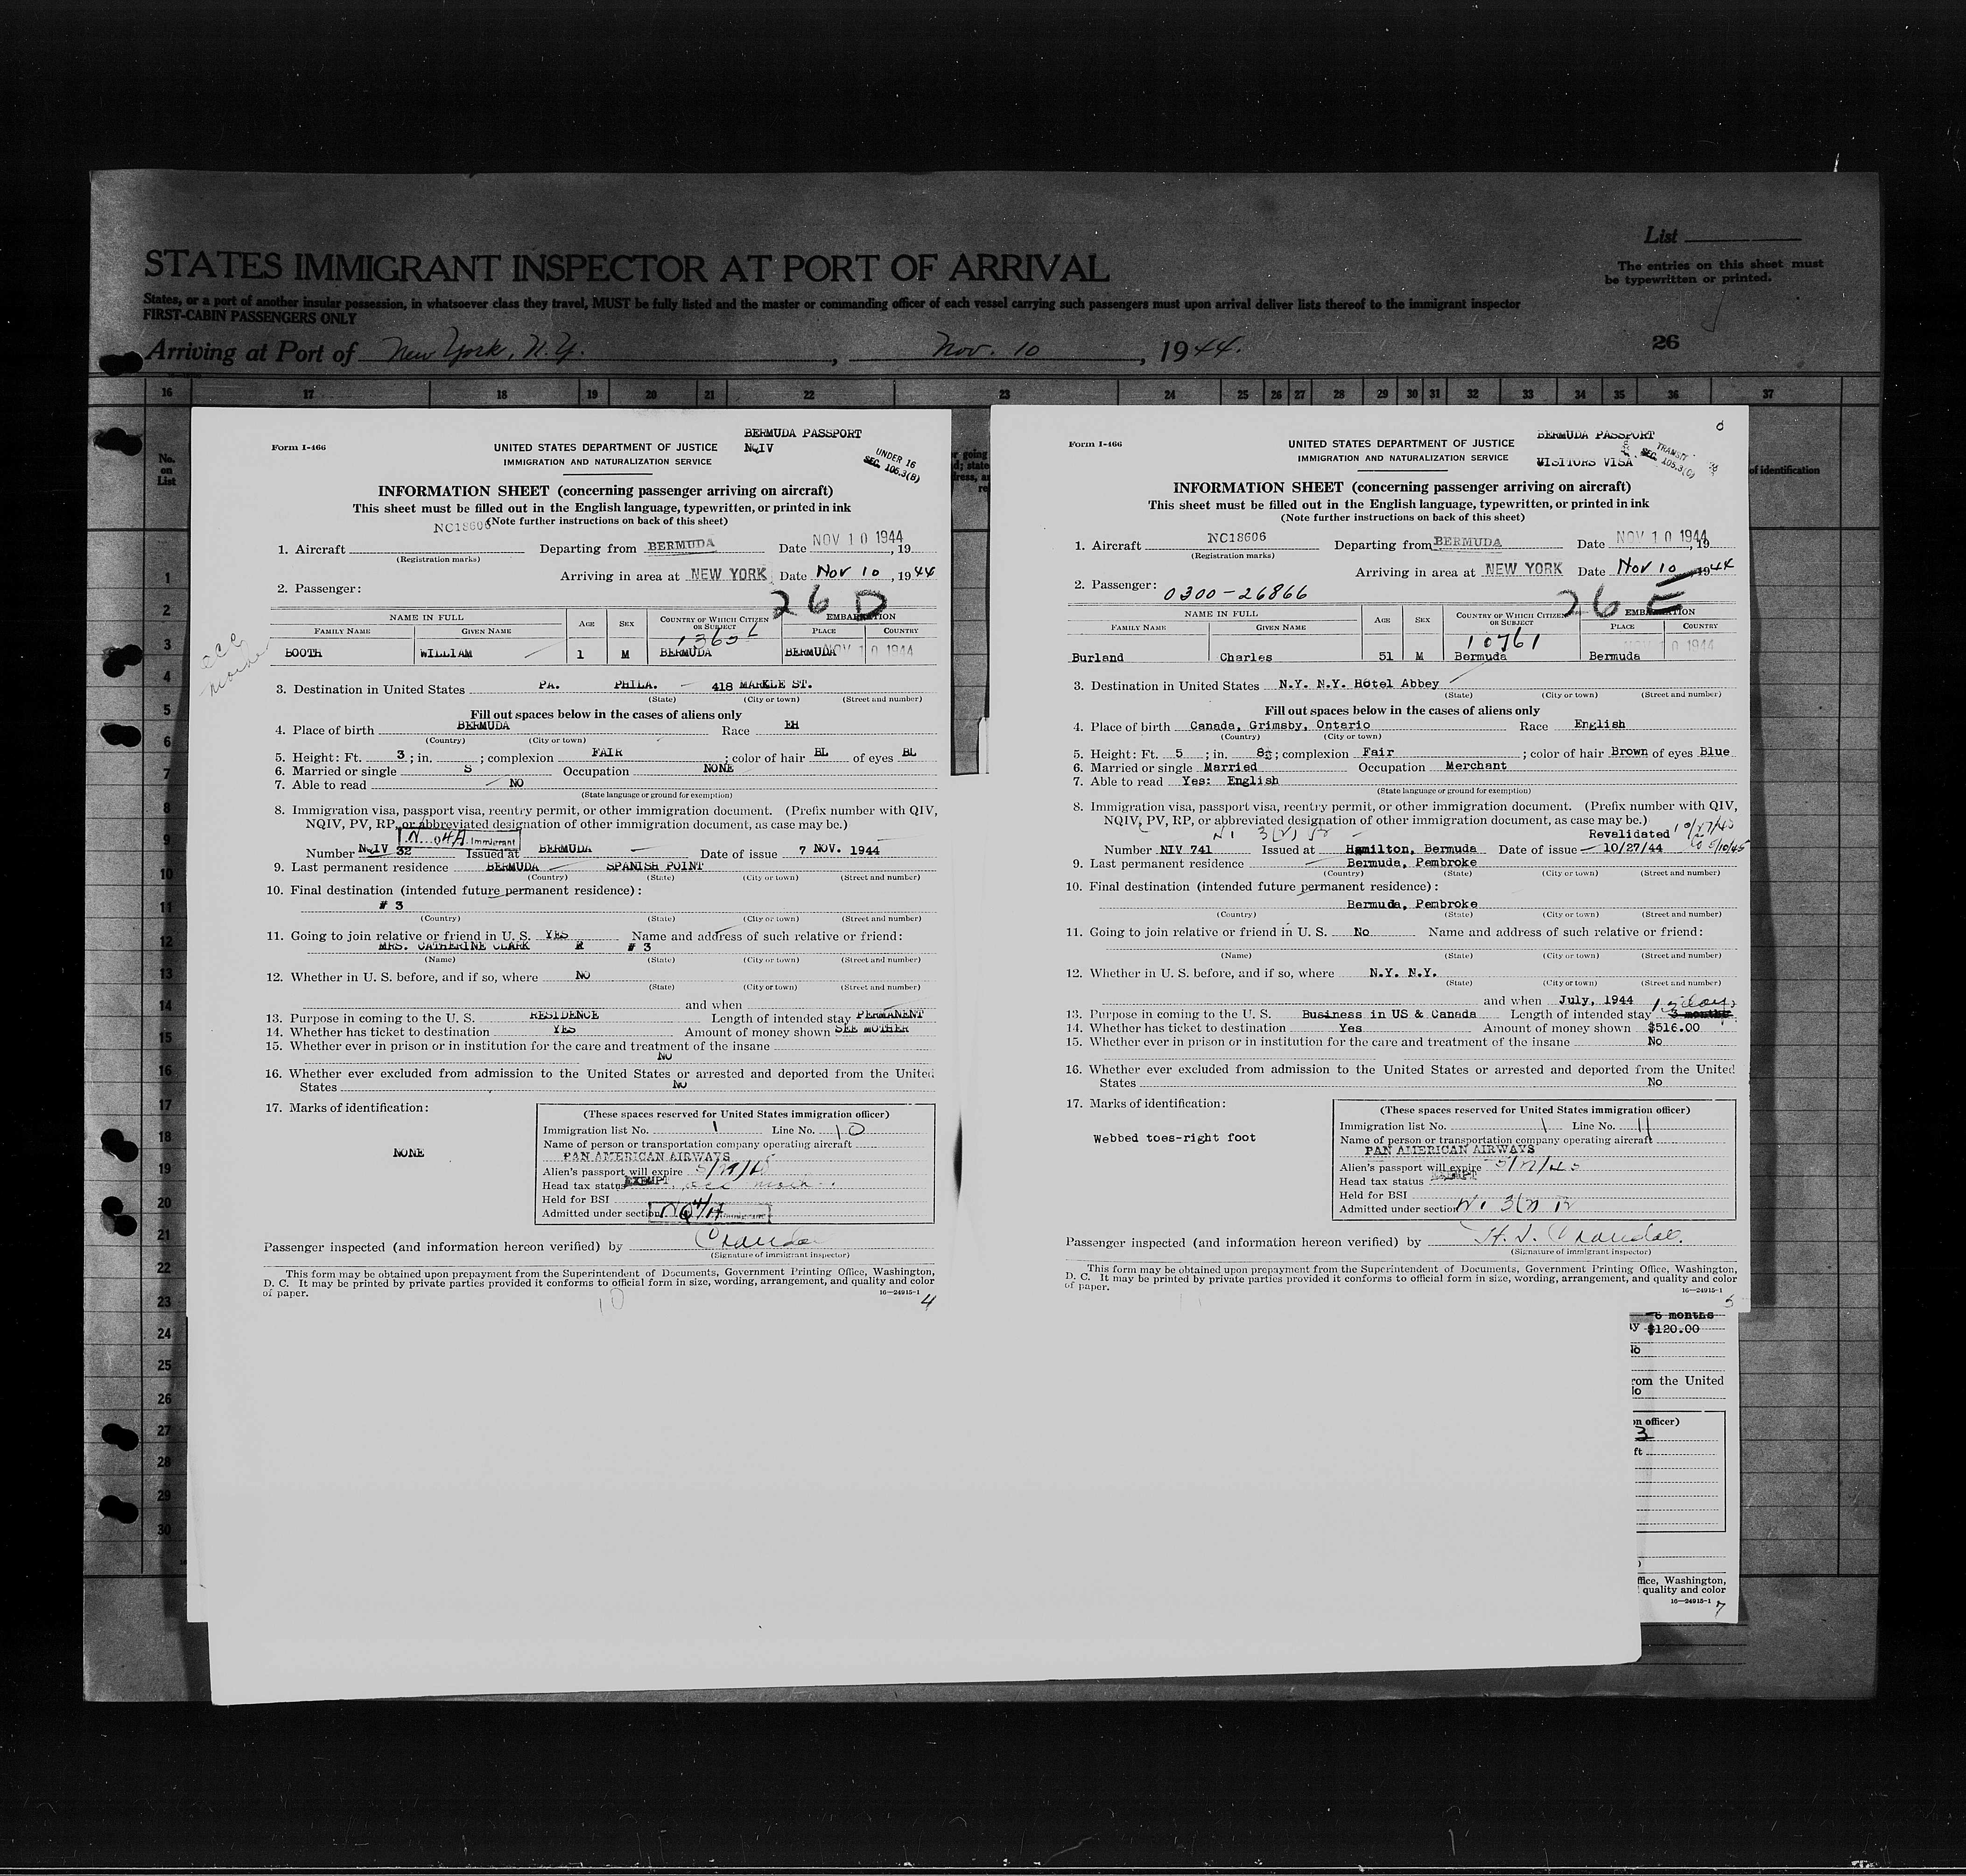 List
STATES IMMIGRANT INSPECTOR AT PORT OF ARRIVAL
The entries on this sheet must
be typewritten or printed.
States, or a port of another insular possession, in whatsoever class they travel, MUST be fully listed and the master or commanding officer of each vessel carrying such passengers must upon arrival deliver lists thereof to the immigrant inspector
FIRST-CABIN PASSENGERS ONLY
Arriving at Port of New York, N.Y. , Nov. 10 , 1944.
26
16 17 18 19 20 21 22 23 24 25 26 27 28 29 30 31 32 33 34 35 36 37
No.
on
List
of identification
1
2
3
4
5
6
7
8
9
10
11
12
13
14
15
16
17
18
19
20
21
22
23
24
25
26
27
28
29
30
BERMUDA PASSPORT
Form I-466
UNITED STATES DEPARTMENT OF JUSTICE
NQIV
IMMIGRATION AND NATURALIZATION SERVICE
UNDER 16
SEC. 105.3(B)
INFORMATION SHEET (concerning passenger arriving on aircraft)
This sheet must be filled out in the English language, typewritten, or printed in ink
NC18606 (Note further instructions on back of this sheet)
1. Aircraft Departing from BERMUDA Date NOV 10 1944, 19
(Registration marks)
Arriving in area at NEW YORK Date Nov 10, 1944
2. Passenger:
26 D
NAME IN FULL AGE SEX COUNTRY OF WHICH CITIZEN OR SUBJECT EMBARKATION
FAMILY NAME GIVEN NAME PLACE COUNTRY
BOOTH WILLIAM 1 M BERMUDA BERMUDA NOV 10 1944
3. Destination in United States PA. PHILA. 418 MARKLE ST.
(State) (City or town) (Street and number)
Fill out spaces below in the cases of aliens only
4. Place of birth BERMUDA Race EH
(Country) (City or town)
5. Height: Ft. 3; in. ; complexion FAIR; color of hair BL of eyes BL
6. Married or single S Occupation NONE
7. Able to read NO
(State language or ground for exemption)
8. Immigration visa, passport visa, reentry permit, or other immigration document. (Prefix number with QIV,
NQIV, PV, RP, or abbreviated designation of other immigration document, as case may be.)
Immigrant
Number NQIV 32 Issued at BERMUDA Date of issue 7 NOV. 1944
9. Last permanent residence BERMUDA SPANISH POINT
(Country) (State) (City or town) (Street and number)
10. Final destination (intended future permanent residence):
# 3
(Country) (State) (City or town) (Street and number)
11. Going to join relative or friend in U. S. YES Name and address of such relative or friend:
MRS. CATHERINE CLARK # 3
(Name) (State) (City or town) (Street and number)
12. Whether in U. S. before, and if so, where NO
(State) (City or town) (Street and number)
and when
13. Purpose in coming to the U. S. RESIDENCE Length of intended stay PERMANENT
14. Whether has ticket to destination YES Amount of money shown SEE MOTHER
15. Whether ever in prison or in institution for the care and treatment of the insane
NO
16. Whether ever excluded from admission to the United States or arrested and deported from the United
States NO
17. Marks of identification:
NONE
(These spaces reserved for United States immigration officer)
Immigration list No. 1 Line No. 10
Name of person or transportation company operating aircraft
PAN AMERICAN AIRWAYS
Alien's passport will expire
Head tax status EXEMPT
Held for BSI
Admitted under section
Passenger inspected (and information hereon verified) by
(Signature of immigrant inspector)
This form may be obtained upon prepayment from the Superintendent of Documents, Government Printing Office, Washington,
D. C. It may be printed by private parties provided it conforms to official form in size, wording, arrangement, and quality and color
of paper.
16—24915-1
10
4
BERMUDA PASSPORT
Form I-466
UNITED STATES DEPARTMENT OF JUSTICE
IMMIGRATION AND NATURALIZATION SERVICE
VISITORS VISA
TRANSIT
SEC. 105.3(C)
INFORMATION SHEET (concerning passenger arriving on aircraft)
This sheet must be filled out in the English language, typewritten, or printed in ink
(Note further instructions on back of this sheet)
1. Aircraft NC18606 Departing from BERMUDA Date NOV 10 1944, 19
(Registration marks)
Arriving in area at NEW YORK Date Nov 10, 1944
2. Passenger: 0300-26866
26 E
NAME IN FULL AGE SEX COUNTRY OF WHICH CITIZEN OR SUBJECT EMBARKATION
FAMILY NAME GIVEN NAME PLACE COUNTRY
10761
Burland Charles 51 M Bermuda Bermuda
3. Destination in United States N.Y. N.Y. Hotel Abbey
(State) (City or town) (Street and number)
Fill out spaces below in the cases of aliens only
4. Place of birth Canada, Grimsby, Ontario Race English
(Country) (City or town)
5. Height: Ft. 5; in. 8½; complexion Fair; color of hair Brown of eyes Blue
6. Married or single Married Occupation Merchant
7. Able to read Yes: English
(State language or ground for exemption)
8. Immigration visa, passport visa, reentry permit, or other immigration document. (Prefix number with QIV,
NQIV, PV, RP, or abbreviated designation of other immigration document, as case may be.)
Revalidated
Number NIV 741 Issued at Hamilton, Bermuda Date of issue 10/27/44
9. Last permanent residence Bermuda, Pembroke
(Country) (State) (City or town) (Street and number)
10. Final destination (intended future permanent residence):
Bermuda, Pembroke
(Country) (State) (City or town) (Street and number)
11. Going to join relative or friend in U. S. No Name and address of such relative or friend:
(Name) (State) (City or town) (Street and number)
12. Whether in U. S. before, and if so, where N.Y. N.Y.
(State) (City or town) (Street and number)
and when July, 1944
13. Purpose in coming to the U. S. Business in US & Canada Length of intended stay 3 months
14. Whether has ticket to destination Yes Amount of money shown $516.00
15. Whether ever in prison or in institution for the care and treatment of the insane No
16. Whether ever excluded from admission to the United States or arrested and deported from the United
States No
17. Marks of identification:
Webbed toes-right foot
(These spaces reserved for United States immigration officer)
Immigration list No. 1 Line No. 11
Name of person or transportation company operating aircraft
PAN AMERICAN AIRWAYS
Alien's passport will expire
Head tax status EXEMPT
Held for BSI
Admitted under section
Passenger inspected (and information hereon verified) by
(Signature of immigrant inspector)
This form may be obtained upon prepayment from the Superintendent of Documents, Government Printing Office, Washington,
D. C. It may be printed by private parties provided it conforms to official form in size, wording, arrangement, and quality and color
of paper.
16—24915-1
5
6 months
$120.00
No
rom the United
officer)
3
ffice, Washington,
quality and color
16—24915-1
7